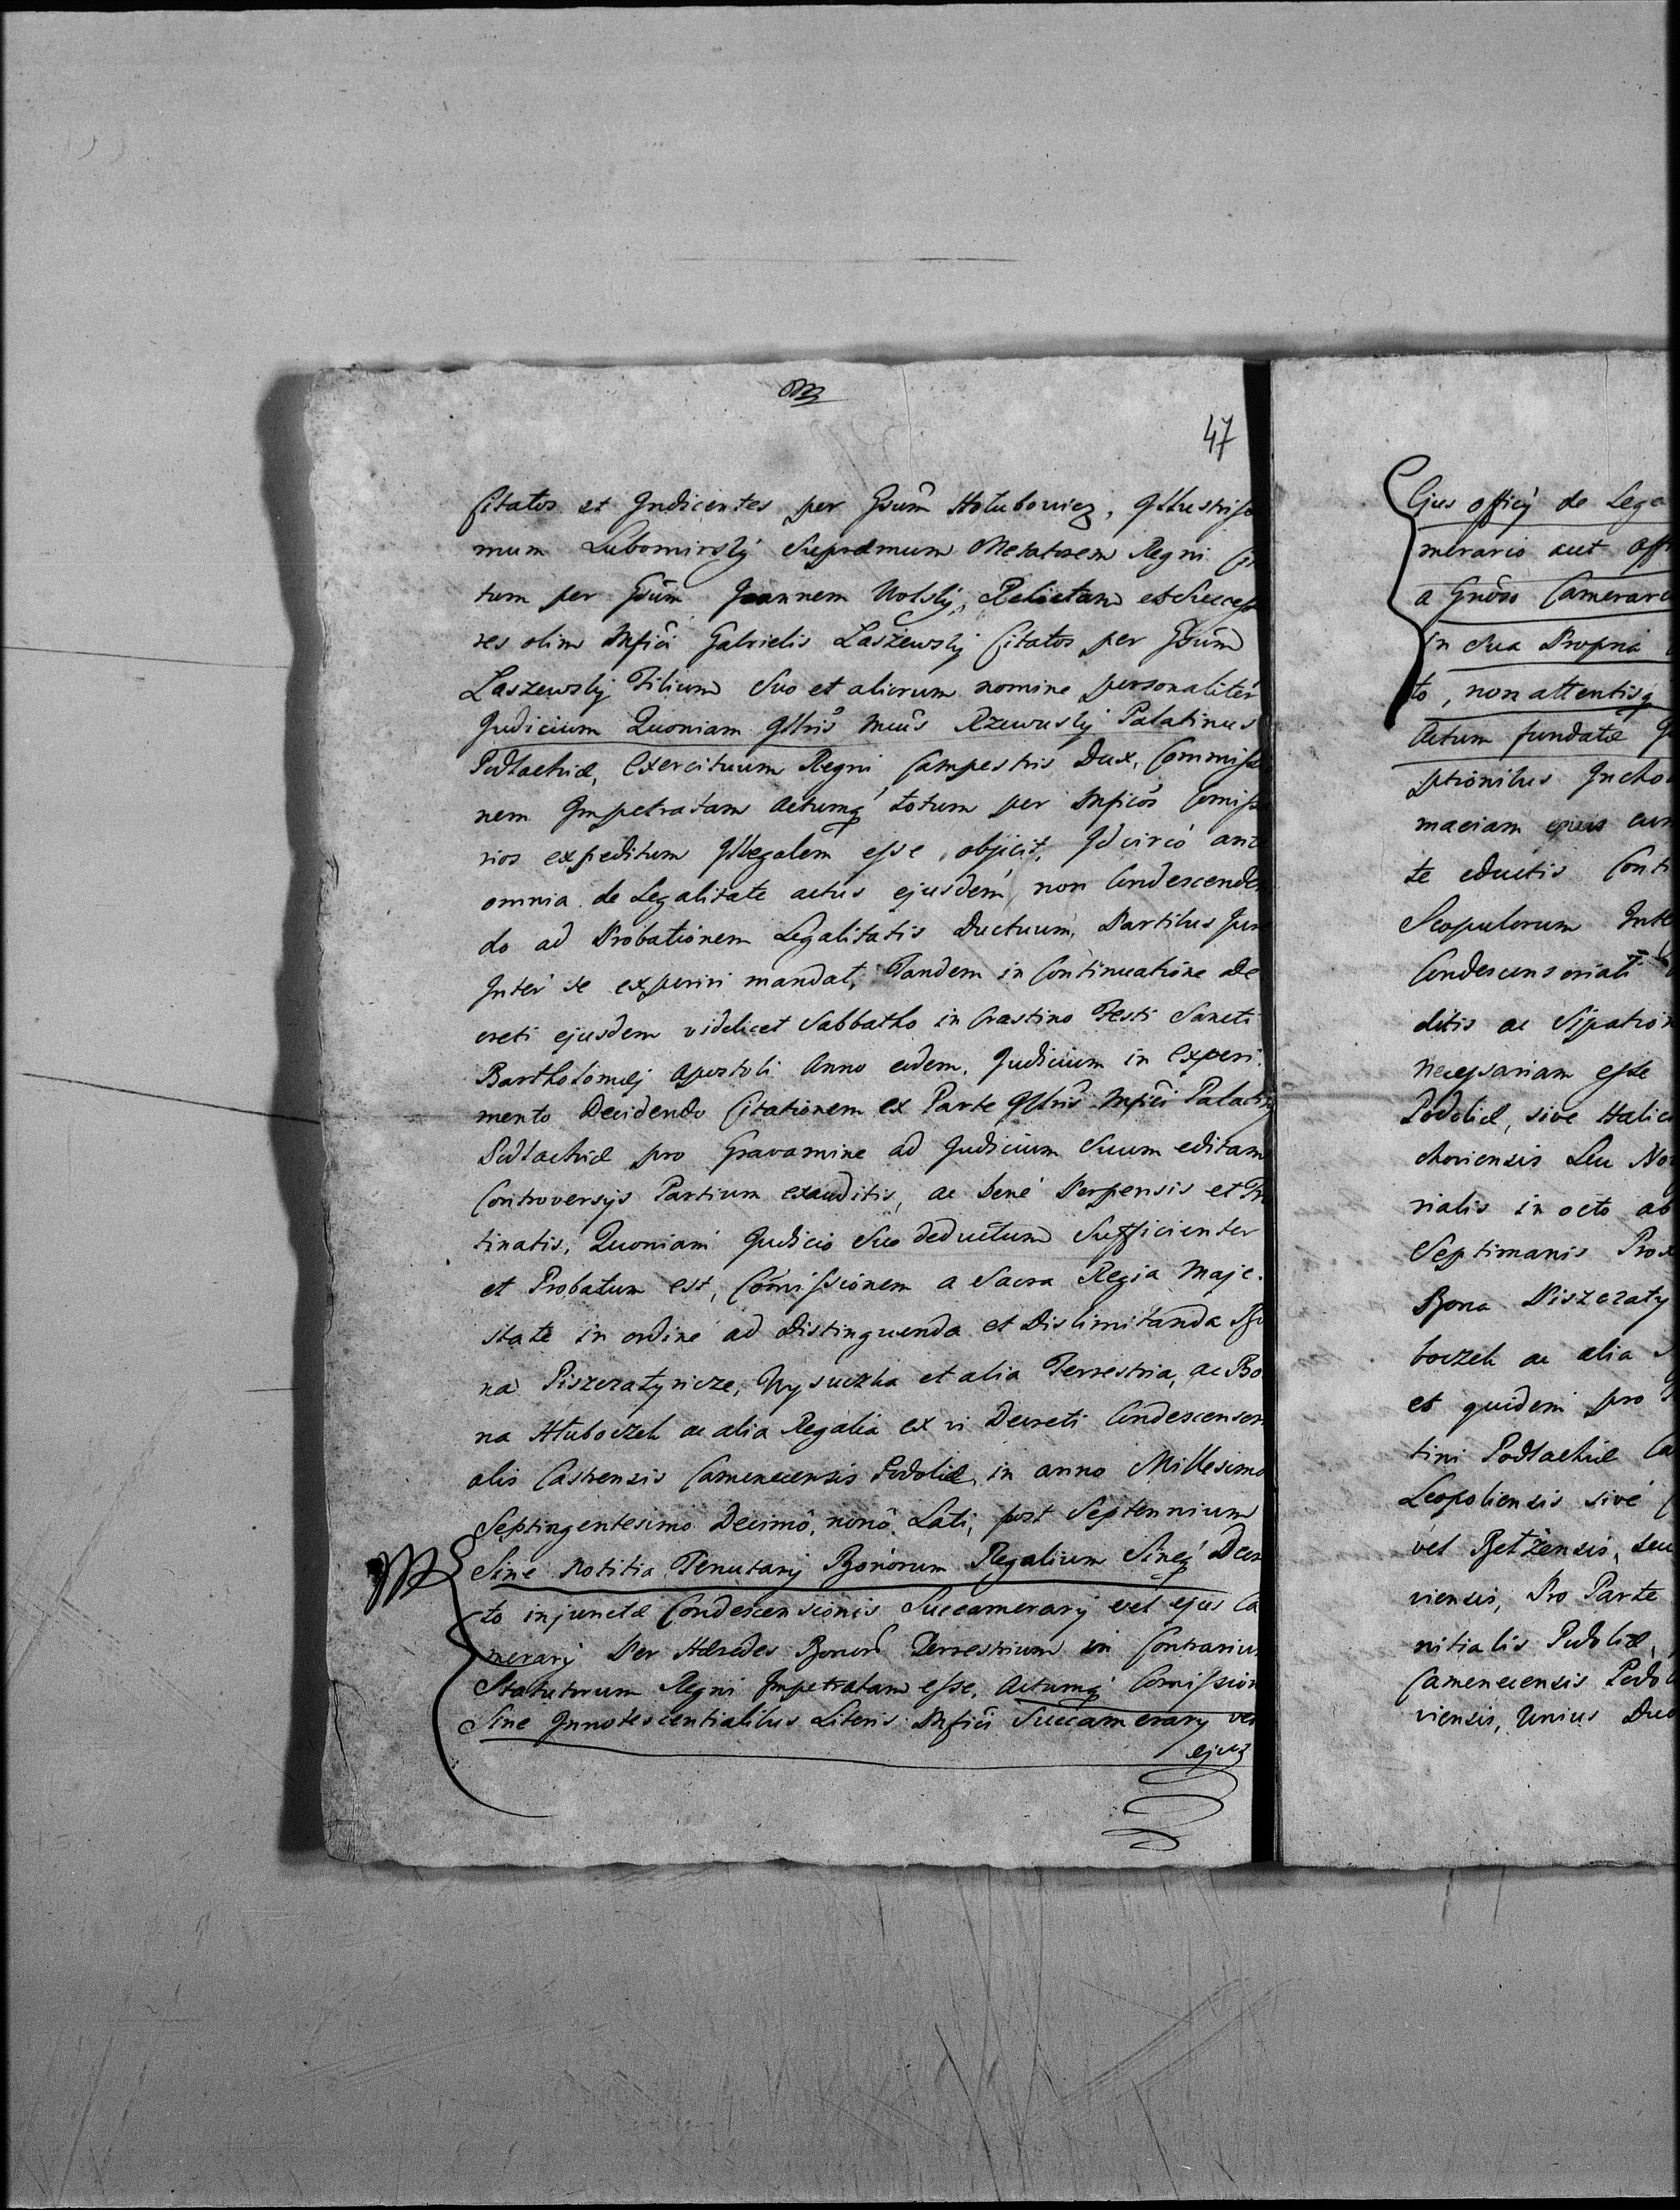 47
Citatos et Indicentes per Gsum Hołubowicz, Illustrisse
mum Lubomirsky Supremum Metatorem Regni Ci
tum per Gsum Joannem Wolsky, Relictam et Successo
res olim Mfici Gabrielis Laszewsky Citatos per Gsum
Laszewsky Filium Suo et aliorum nomine personaliter
Judicium Quoniam Illris Mcus Rzewusky Palatinus
Podlachiæ, Exercituum Regni Campestris Dux, Commissio
nem Impetratam actumq totum per Mficos Comissa
rios expeditum Illegalem esse objicit, Idcirco ante
omnia de Legalitate actus ejusdem, non Condescenden
do ad Probationem Legalitatis Ductuum, Partibus Jure
Inter se experiri mandat, Tandem in Continuatione De
creti ejusdem videlicet Sabbatho in Crastino Festi Sancti
Bartholomæj Apostoli Anno eodem, Judicium in Experi
mento Decidendo Citationem ex Parte Illris Mfici Palatini
Podlachiæ pro Gravamine ad Judicium Suum editam
Controversijs Partium exauditis, ac bene Perpensis et Tru
tinatis, Quoniam Judicio Suo deductum Sufficienter
et Probatum est, Comissionem a Sacra Regia Maje
state in ordine ad Distinguenda et Dislimitanda Bo
na Piszczatyńcze, Wysuczka et alia Terrestria, ac Bo
na Hłuboczek ac alia Regalia ex vi Decreti Condescensori
alis Castrensis Camenecensis Podoliæ in anno Millesimo
Septingentesimo Decimo nono Lati, post Septennium
Sine Notitia Tenutarij Bonorum Regalium Sineq Decre
to injunctæ Condescensionis Succamerarij vel ejus Ca
merarij Per Hæredes Bonorũ Terrestrium in Contrarium
Statutorum Regni Impetratam esse, Actumq Comission
Sine Innotescentialibus Literis Mfici Succamerarij vel
ejus
Ejus officij de Lega
merario aut offi
a Gnoso Camerari
in Sua Propria
to, non attentisq
Actum fundatæ
ptionibus Incho
maciam cum
te eductis Cont
Scopulorum Inte
Condescensoriali
ditis ac Sipatio
necessariam esse
Podoliæ, sive Halici
choviensis Seu
rialis in octo ab
Septimanis Prox
Bona Piszczaty
boczek ac alia
et quidem pro
tini Podlachiæ Ca
Leopoliensis sive
vel Betzensis, seu
viensis, Pro Parte
nitialis Podoliæ,
Camenecensis Podo
viensis, Unius Duo